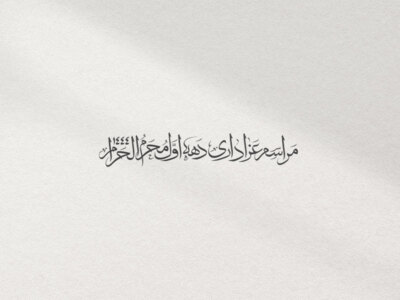 مراسم عزاداری دههٔ اول محرم الحرام ۱۴۴۴